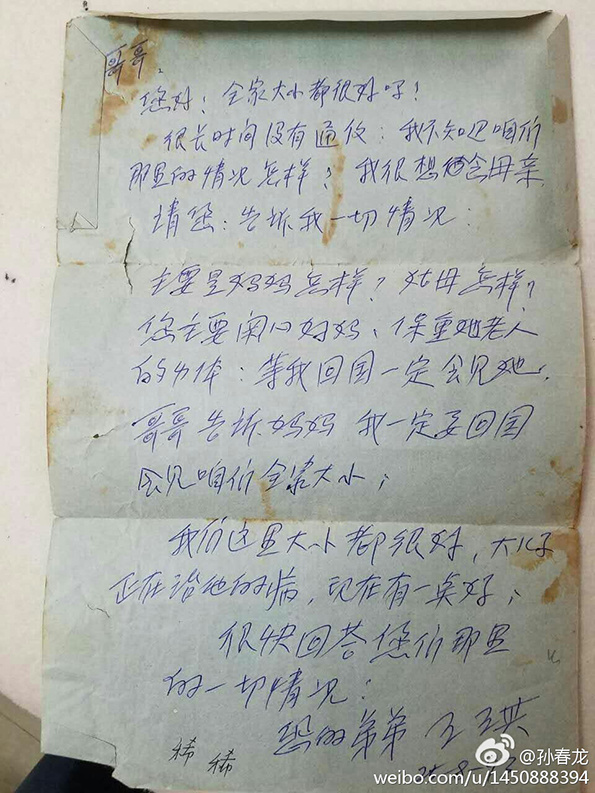 哥哥:
您好!全家大小都很好吗!
很长时间没有通信:我不知道咱们
那里的情况怎样?我很想念母亲
请您:告诉我一切情况:
主要是妈妈怎样?姑母怎样?
您主要关心好妈、保重她老人
的身体:等我回国一定会见她.
哥哥告诉妈妈我一定要回国
会见咱们全家大小;
我们这里大小都很好,大儿子
正在治他的病,现在有一点好;
很快回答您们那里
的一切情况:
您的弟弟 王琪
@孙春龙
weibo.com/u/1450888394